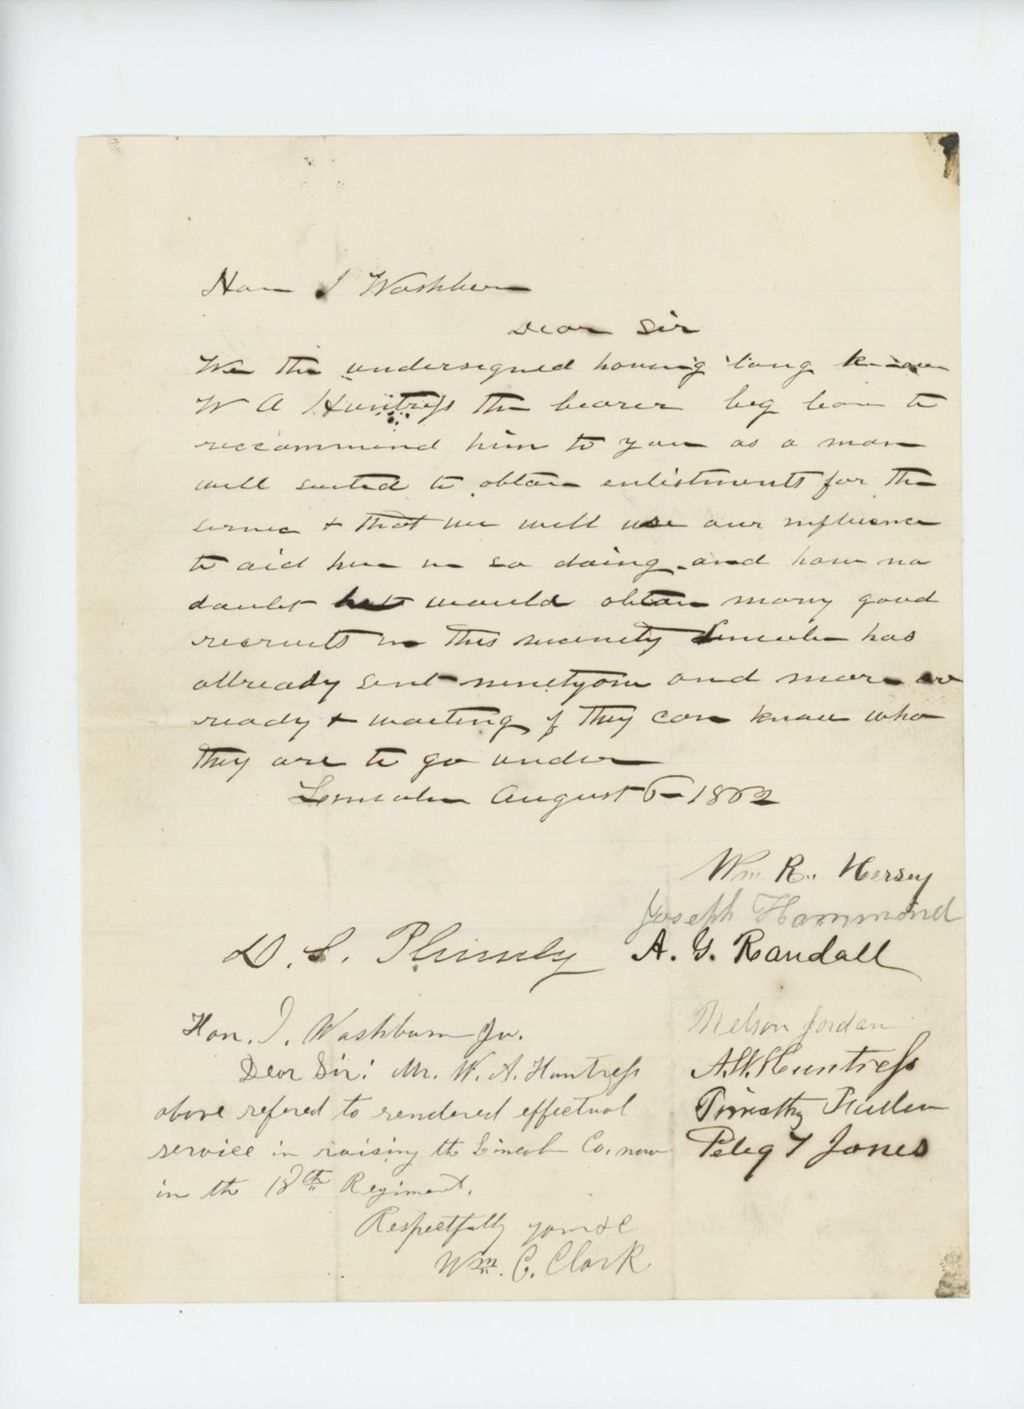 Hon I Washburn
Dear Sir
We the undersigned having long known
W A Huntress the bearer beg leave to
reccommend him to you as a man
well suited to obtain enlistments for the
service & that we will use our influence
to aid him in so doing and have no
doubt but would obtain many good
recruits in this vicinity Lincoln has
allready sent ninetyone and more are
ready & waiting if they can know who
they are to go under
Lincoln August 6 1862
Wm R. Hersey
Joseph Hammond
D. S. Plumly A. G. Randall
Nelson Jordan
A. W. Huntress
Timothy Fuller
Peleg T Jones
Hon. I. Washburn Jr.
Dear Sir: Mr. W. A. Huntress
above refered to rendered effectual
service in raising the Lincoln Co. now
in the 18th Regiment.
Respectfully yours &c
Wm. C. Clark